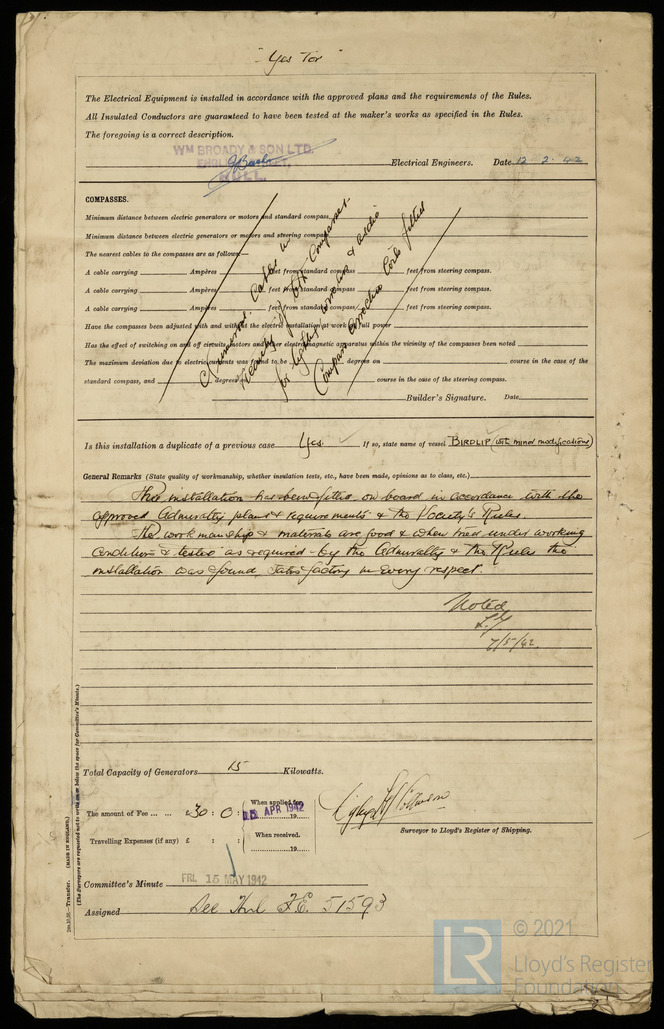 "Yes Tor"
The Electrical Equipment is installed in accordance with the approved plans and the requirements of the Rules.
All Insulated Conductors are guaranteed to have been tested at the maker's works as specified in the Rules.
The foregoing is a correct description.
WM BROADY & SON LTD.
HULL.
Electrical Engineers. Date 12-2-42
COMPASSES.
Minimum distance between electric generators or motors and standard compass
Minimum distance between electric generators or motors and steering compass
The nearest cables to the compasses are as follows:—
A cable carrying Ampères feet from standard compass feet from steering compass.
A cable carrying Ampères feet from standard compass feet from steering compass.
A cable carrying Ampères feet from standard compass feet from steering compass.
Have the compasses been adjusted with and without the electric installation at work at full power
Has the effect of switching on and off circuits, motors and other electromagnetic apparatus within the vicinity of the compasses been noted
The maximum deviation due to electric currents was found to be degrees on course in the case of the
standard compass, and degrees course in the case of the steering compass.
Numerous Cables in
vicinity of both Compasses.
for lighting, correction & audio
Compass Correction Coils fitted
Builder's Signature. Date
Is this installation a duplicate of a previous case Yes. If so, state name of vessel BIRDLIP (with minor modifications)
General Remarks (State quality of workmanship, whether insulation tests, etc., have been made, opinions as to class, etc.)
This installation has been fitted on board in accordance with the
approved Admiralty plans & requirements & the Society's Rules.
The workmanship & materials are good & when tried under working
conditions & tested as required by the Admiralty & the Rules the
installation was found satisfactory in every respect.
Noted
7/5/42.
Total Capacity of Generators 15 Kilowatts.
The amount of Fee ... ... £30 : 0 : When applied for,
APR 1942
19
Travelling Expenses (if any) £ : : When received,
19
Surveyor to Lloyd's Register of Shipping.
Committee's Minute FRI. 15 MAY 1942
Assigned See Hul F.E. 51593
Transfer. (MADE IN ENGLAND.)
(The Surveyors are requested not to write on or below the space for Committee's Minute.)
LR
© 2021
Lloyd's Register
Foundation